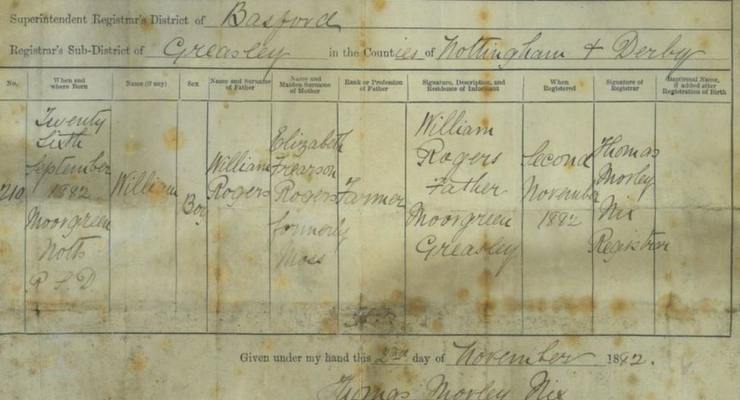 Superintendent Registrar's District of Basford
Registrar's Sub-District of Greasley in the Counties of Nottingham & Derby
No.
When and where Born
Name (if any)
Sex
Name and Surname of Father
Name and Maiden Surname of Mother
Rank or Profession of Father
Signature, Description, and Residence of Informant
When Registered
Signature of Registrar
Baptismal Name, if added after Registration of Birth
210
Twenty
Sixth
September
1882
Moorgreen
Notts
R S D
William
Boy
William
Rogers
Elizabeth
Frearson
Rogers
formerly
Moss
Farmer
William
Rogers
Father
Moorgreen
Greasley
Second
November
1882
Thomas
Morley
Nix
Registrar
Given under my hand this 2nd day of November 1882.
Thomas Morley Nix